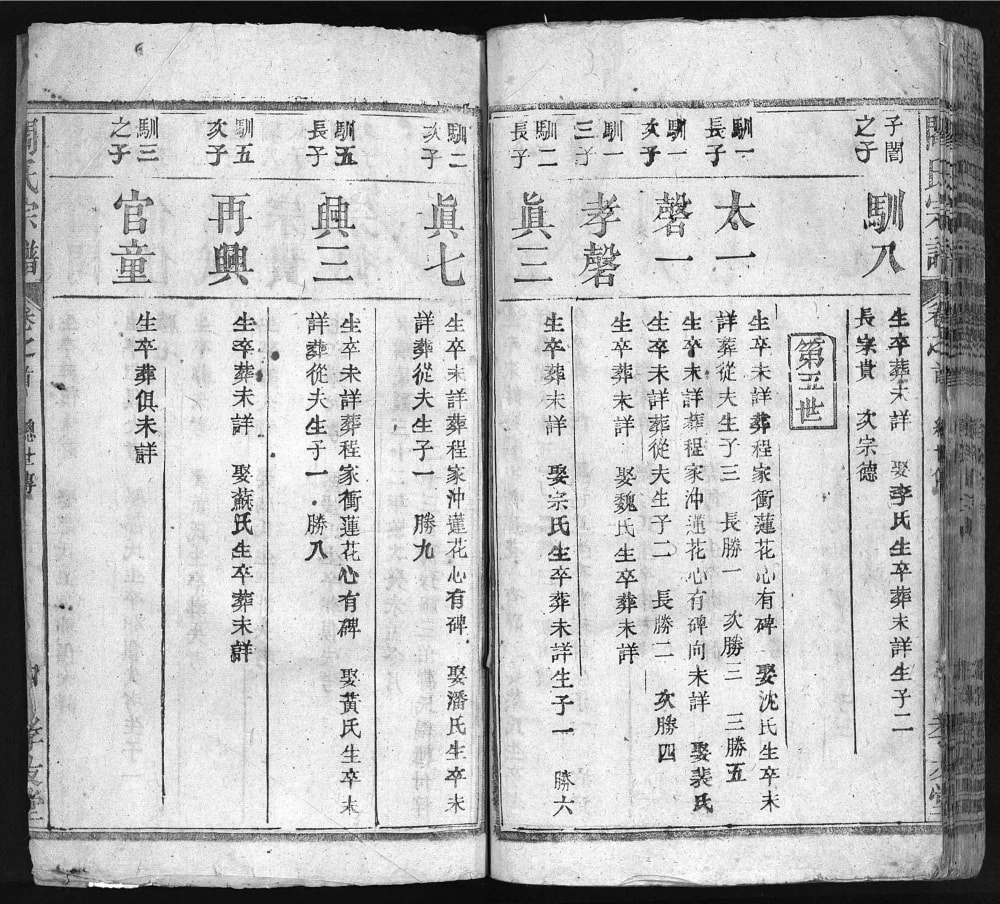 子誾
之子
馴八
生卒葬未詳 娶李氏生卒葬未詳生子二
長宗貴 次宗德
第五世
馴一
長子
太一
生卒未詳葬程家衝蓮花心有碑 娶沈氏生卒未
詳葬從夫生子三 長勝一 次勝三 三勝五
馴一
次子
磬一
生卒未詳葬程家沖蓮花心有碑向未詳 娶裴氏
生卒未詳葬從夫生子二 長勝二 次勝四
馴一
三子
孝磬
生卒葬未詳 娶魏氏生卒葬未詳
馴二
長子
眞三
生卒葬未詳 娶宗氏生卒葬未詳生子一 勝六
馴二
次子
眞七
生卒未詳葬程家沖蓮花心有碑 娶潘氏生卒未
詳葬從夫生子一 勝九
馴五
長子
興三
生卒未詳葬程家衝蓮花心有碑 娶黃氏生卒未
詳葬從夫生子一 勝八
馴五
次子
再興
生卒葬未詳 娶蘇氏生卒葬未詳
馴三
之子
官童
生卒葬俱未詳
氏宗譜 卷之首 總世傳 孝友堂